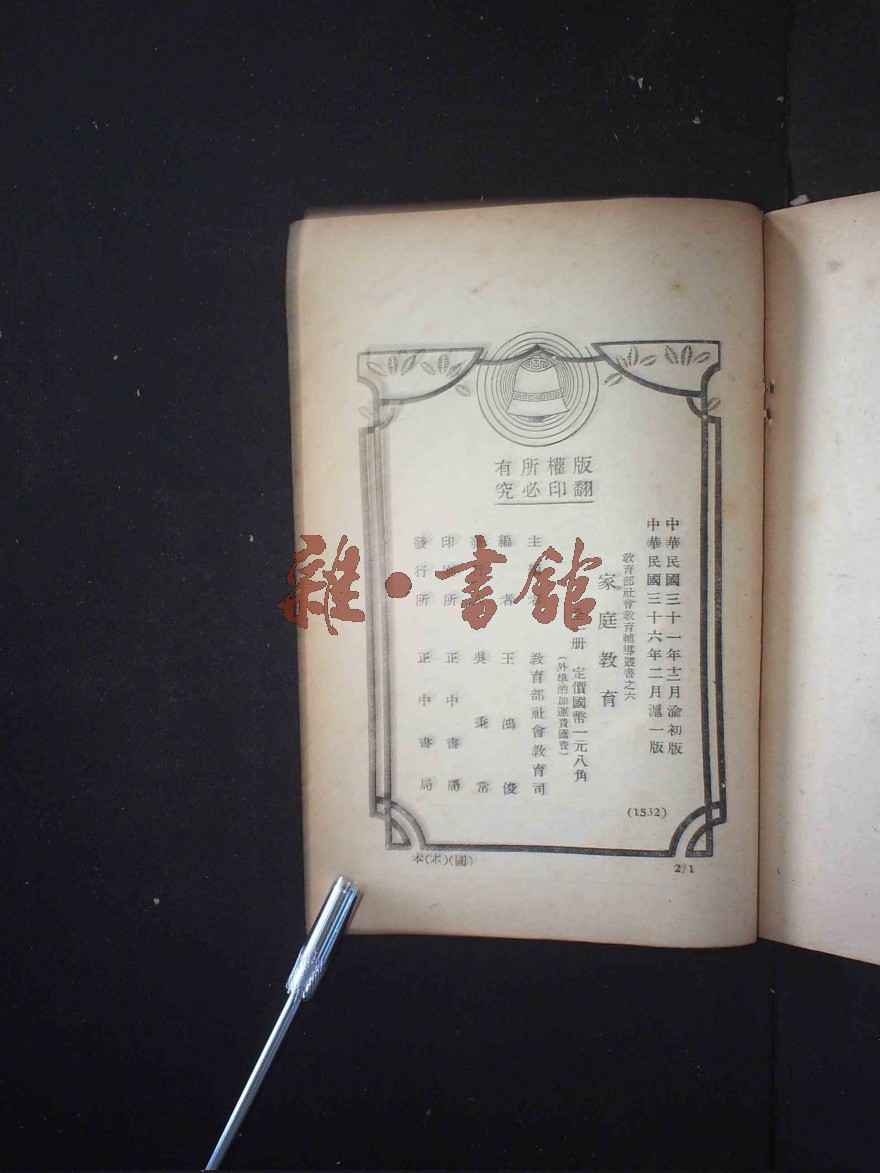 版權所有
翻印必究
中華民國三十一年十二月渝初版
中華民國三十六年二月滬一版
教育部社會教育輔導叢書之六
家庭教育
全一册 定價國幣一元八角
(外埠酌加運費匯費)
主編者 教育部社會教育司
編者 王鴻俊
發行人 吳秉常
印刷所 正中書局
發行所 正中書局
(1532)
(國)(木)本
2/1
雜·書館